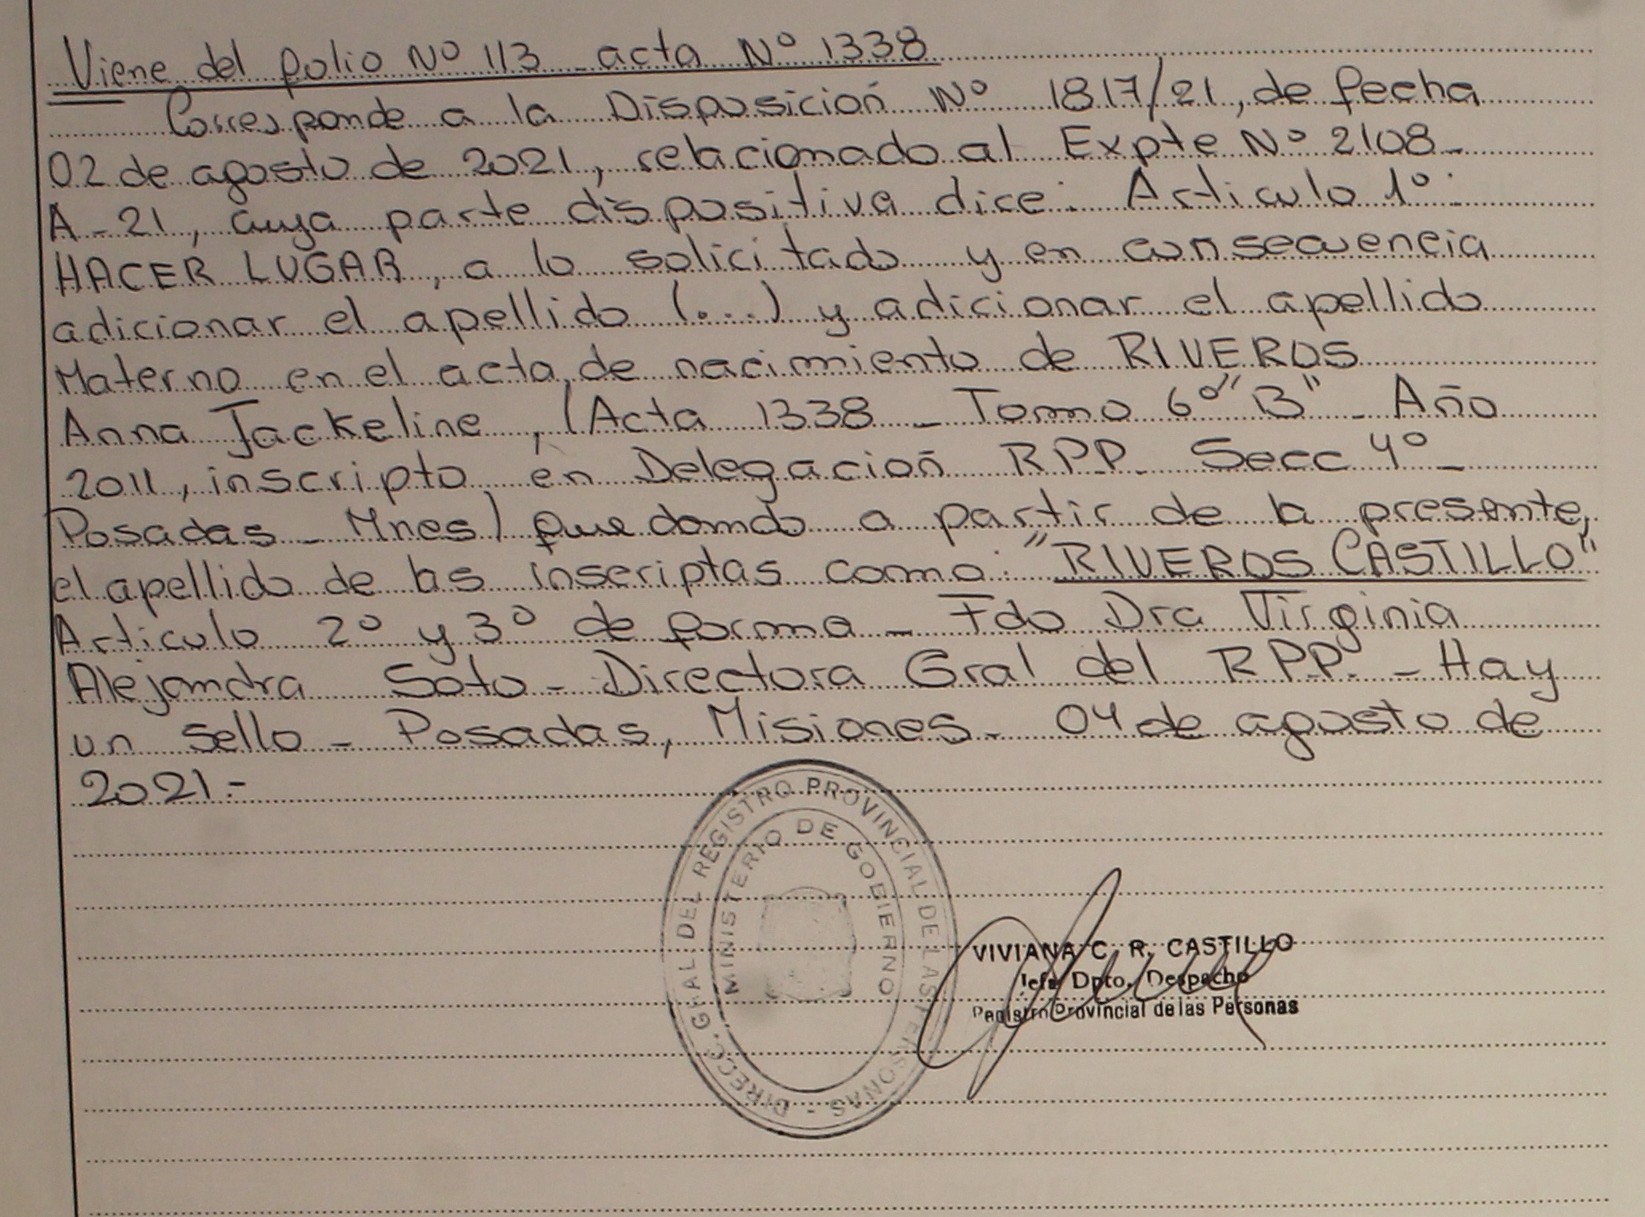 Viene del folio Nº 113 acta Nº 1338
Corresponde a la Disposición Nº 1817/21, de fecha
02 de agosto de 2021, relacionado al Expte Nº 2108-
A-21, cuya parte dispositiva dice: Articulo 1º:
HACER LUGAR, a lo solicitado y en consecuencia
adicionar el apellido (...) y adicionar el apellido
Materno en el acta de nacimiento de RIVEROS
Anna Jackeline, (Acta 1338 - Tomo 6º "B" - Año
2011, inscripto en Delegación RPP. Secc 4º -
Posadas - Mnes) quedando a partir de la presente,
el apellido de las inscriptas como: "RIVEROS CASTILLO"
Articulo 2º y 3º de forma - Fdo Dra Virginia
Alejandra Soto - Directora Gral del RPP. - Hay
un sello - Posadas, Misiones - 04 de agosto de
2021.-
DIRECC. GRAL. DEL REGISTRO PROVINCIAL DE LAS PERSONAS -
MINISTERIO DE GOBIERNO
VIVIANA C. R. CASTILLO
Jefe Dpto. Despacho
Registro Provincial de las Personas